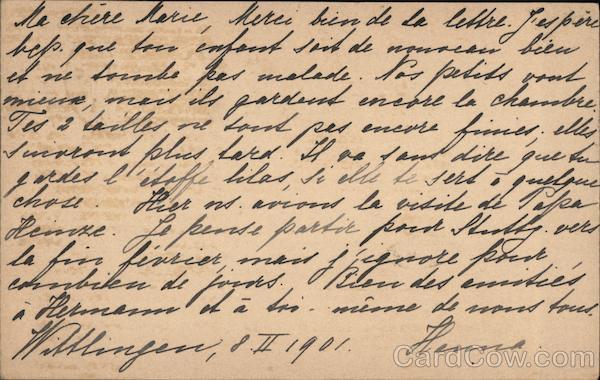 Ma chère Marie, Merci bien de ta lettre. J'espère
bcp. que ton enfant soit de nouveau bien
et ne tombe pas malade. Nos petits vont
mieux, mais ils gardent encore la chambre.
Tes 2 tailles ne sont pas encore finies, elles
suivront plus tard. Il va sans dire que tu
gardes l'étoffe lilas, si elle te sert à quelque
chose. Hier ns. avions la visite de Papa
Heinze. Je pense partir pour Stuttg. vers
la fin février mais j'ignore pour
combien de jours. Bien des amitiés
à Hermann et à toi-même de nous tous.
Wittlingen, 8. II 1901. Hanna.
CardCow.com